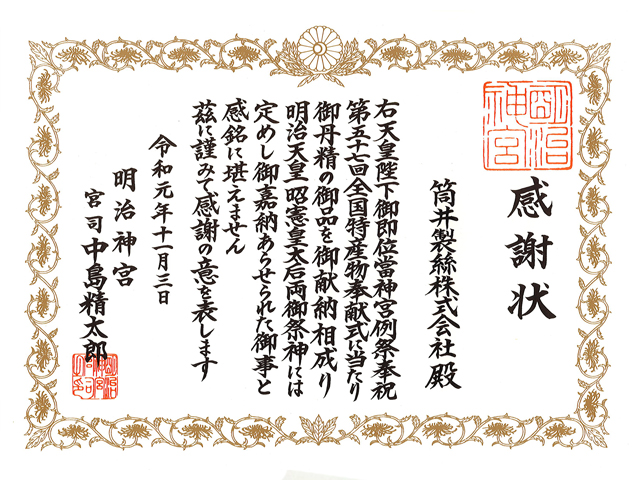 感謝状
明治神宮
筒井製絲株式会社殿
右天皇陛下御即位當神宮例祭奉祝
第五十七回全国特産物奉献式に当たり
御丹精の御品を御献納相成り
明治天皇昭憲皇太后両御祭神には
定めし御嘉納あらせられた御事と
感銘に堪えません
茲に謹みて感謝の意を表します
令和元年十一月三日
明治神宮
宮司中島精太郎